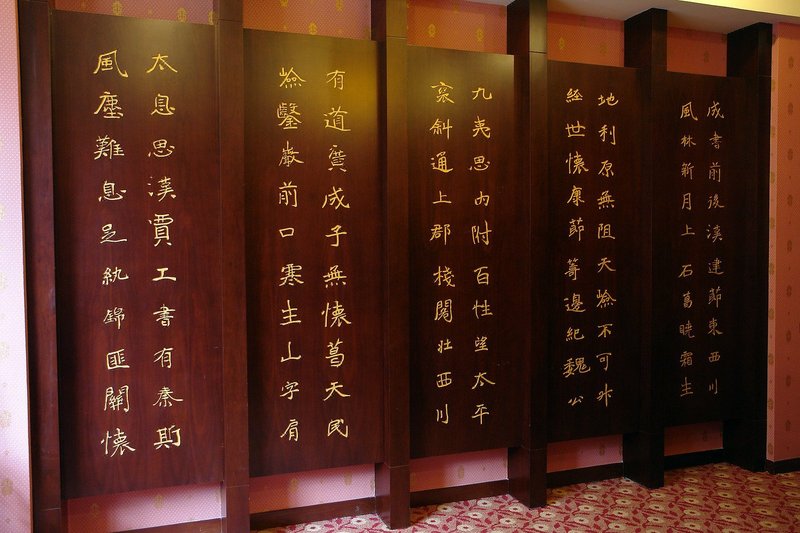 成書前後漢建節東西川
風林新月上石曉霜生
地利原無阻天險不可升
經世懷康節籌邊紀魏公
九夷思內附百姓望太平
褒斜通上郡棧閣壯西川
有道質成子無懷葛天民
險鑿巖前口寒生山字肩
太息思漢賈工書有秦斯
風塵難息足紈錦匪關懷